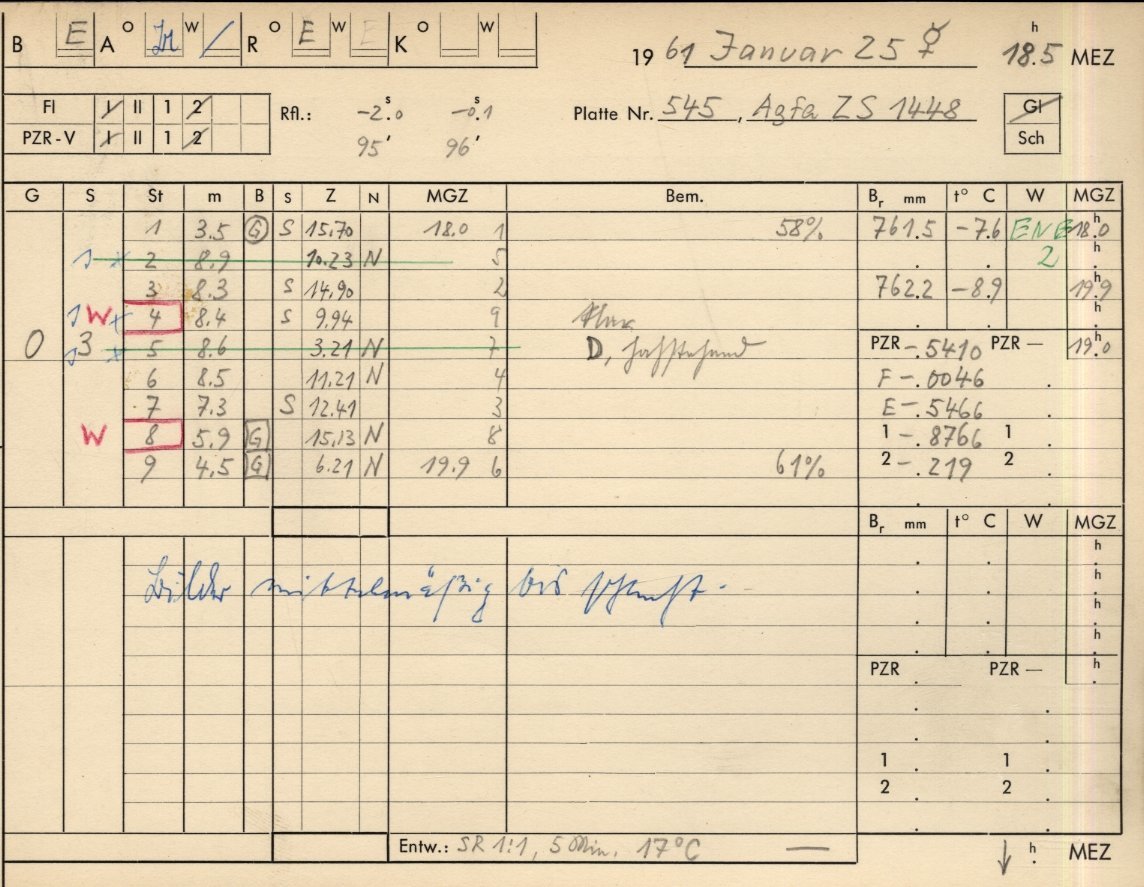 B E A O W R O E W E K O W 19 61 Januar 25 ☿ 18.5 h MEZ
Fl I II 1 2 Rfl.: -2.0 s -0.1 s Platte Nr. 545, Agfa ZS 1448 Gl
PZR-V I II 1 2 95' 96' Sch
G S St m B S Z N MGZ Bem. Br mm t° C W MGZ
1 3.5 G S 15.70 18.0 1 58% 761.5 -7.6 ENE 18.0 h
2 8.9 10.23 N 5 2 h
3 8.3 S 14.90 2 762.2 -8.9 19.9 h
W 4 8.4 S 9.94 9 klar h
0 3 5 8.6 3.21 N 7 D, PZR -.5410 PZR — 19.0 h
6 8.5 11.21 N 4 F -.0046
7 7.3 S 12.41 3 E -.5466
W 8 5.9 G 15.13 N 8 1 -.8766 1
9 4.5 G 6.21 N 19.9 6 61% 2 -.219 2
Br mm t° C W MGZ
h
Bilder mittelmäßig bis h
h
h
PZR PZR — h
1 1
2 2
Entw.: SR 1:1, 5 Min. 17°C — h MEZ